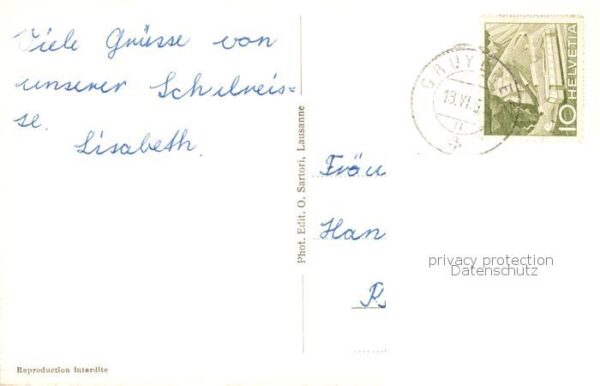 Viele Grüsse von
unserer Schulreis-
se.
Lisabeth.
Phot. Edit. O. Sartori, Lausanne
Fräu
Han
HELVETIA
10
GRUY E
13.VI.5
privacy protection
Datenschutz
Reproduction interdite